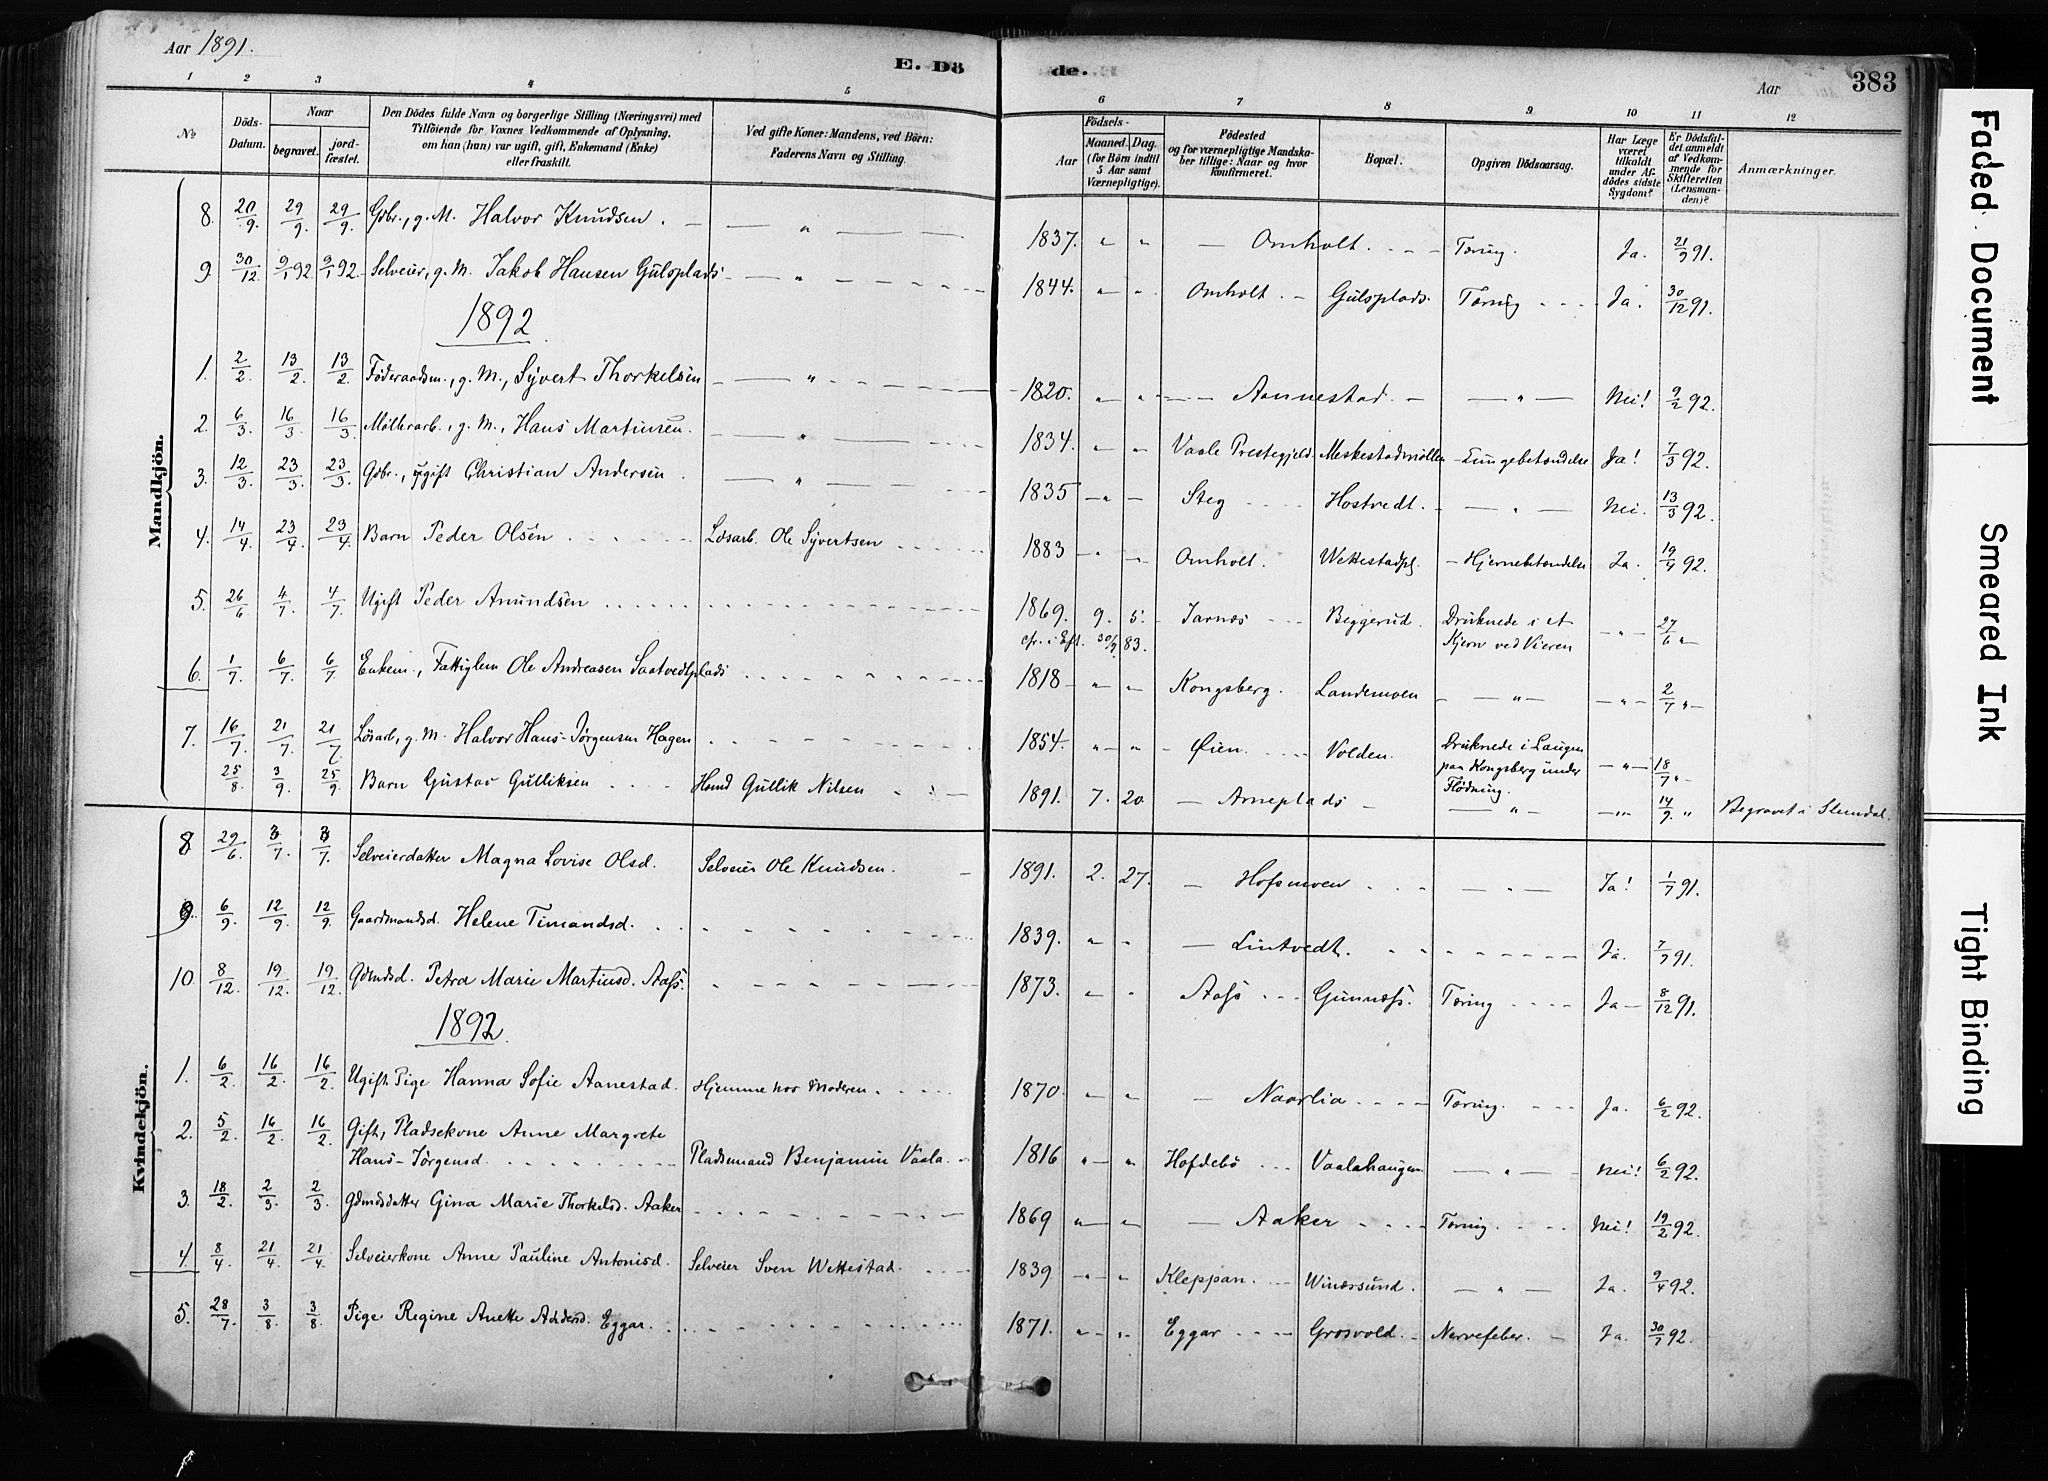 Aar 1891.
E. Dö
de.
Aar
383
1 2 3 4 5 6 7 8 9 10 11 12
No
Döds-Datum.
Naar
begravet.
jord-fæstet.
Den Dödes fulde Navn og borgerlige Stilling (Næringsvei) med
Tilföiende for Voxnes Vedkommende af Oplysning,
om han (hun) var ugift, gift, Enkemand (Enke)
eller fraskilt.
Ved gifte Koner: Mandens, ved Börn:
Faderens Navn og Stilling.
Födsels-
Aar
Maaned. Dag.
(for Börn indtil
5 Aar samt
Værnepligtige).
Födested
og for værnepligtige Mandska-
ber tillige: Naar og hvor
konfirmeret.
Bopæl.
Opgiven Dödsaarsag.
Har Læge
været
tilkaldt
under Af-
dödes sidste
Sygdom?
Er Dödsfal-
det anmeldt
af Vedkom-
mende for
Skifteretten
(Lensman-
den)?
Anmærkninger.
Mandkjön.
8. 20/9. 29/9. 29/9. Gdbr., g. M. Halvor Knudsen. — „ — 1837. „ „ — Omholt. Tæring. Ja. 21/9 91.
9. 30/12. 9/1 92. 9/1 92. Selveier, g. M. Jakob Hansen Gulsplads — „ — 1844. „ „ Omholt. Gulsplads. Tæring Ja. 30/12 91.
1892
1. 2/2. 13/2. 13/2. Föderaadsm., g. M., Syvert Thorkelsen — „ — 1820. „ „ — Aannestad. — „ — Nei! 9/2 92.
2. 6/3. 16/3. 16/3. Möllerarb., g. M., Hans Martinsen. — „ — 1834. „ „ Vaale Prestegjeld. Meskestadmöllen Lungebetændelse Ja! 7/3 92.
3. 12/3. 23/3. 23/3. Gdbr., ugift Christian Andersen — „ — 1835 „ — Steg Hostvedt. — „ — Nei. 13/3 92.
4. 14/4. 23/4. 23/4. Barn Peder Olsen Løsarb. Ole Syvertsen 1883 „ — Omholt. Wettestadpl. Hjernebetændelse Ja. 19/4 92.
5. 26/6 4/7. 4/7. Ugift Peder Amundsen 1869. 9. 5. Jarnæs Beggerud. Druknede i et — „ — 27/6 „
cfr. i Eft. 30/9 83. Kjern ved Vieren
6. 1/7. 6/7. 6/7. Enkem., Fattiglem Ole Andreasen Saatvedtplads 1818 „ „ Kongsberg. Landemoen — „ — — „ — 2/7 „
7. 16/7. 21/7. 21/7. Lösarb, g. M. Halvor Hans-Jørgensen Hagen 1854. „ „ Øien. Volden. Druknede i Laugen — „ — 18/7 „
paa Kongsberg under
Flödning.
25/8. 3/9. 25/9. Barn Gustav Gulliksen Hmd Gullik Nilsen 1891. 7. 20. — Arneplads — — „ — — „ — 14/9. „ Begravet i Stendal.
Kvindekjön.
8 29/6. 3/7. 3/7. Selveierdatter Magna Lovise Olsd. Selveier Ole Knudsen. 1891. 2. 27. — Hofsmoen — „ — Ja! 1/7 91.
9. 6/9. 12/9. 12/9. Gaardmandsd. Helene Timandsd. 1839. „ „ — Lintvedt. Ja. 7/9 91.
10. 8/12. 19/12. 19/12. Gdmdsd. Petra Marie Martinsd. Aass. 1873. „ „ Aass Gunnæss. Tæring Ja — 8/12 91.
1892.
1. 6/2. 16/2. 16/2. Ugift Pige Hanna Sofie Aanestad. Hjemme hos Moderen. 1870. „ „ — Naarlia Tæring. Ja. 6/2 92.
2. 5/2. 16/2. 16/2. Gift, Pladsekone Anne Margrete
Hans-Jörgensd. Pladsemand Benjamin Vaala. 1816 „ „ Hofdebö Vaalahaugen — „ — Nei! 6/2 92.
3. 18/2. 2/3. 2/3. Gdmdsdatter Gina Marie Thorkelsd. Aaker 1869 „ „ — Aaker Tæring. Nei! 19/2 92.
4. 8/4. 21/4. 21/4. Selveierkone Anne Pauline Antonisd. Selveier Sven Wettestad. 1839 „ „ Kleppan. Winærsund. — „ — Ja. 9/4 92.
5. 28/7. 3/8. 3/8. Pige Regine Anette Andersd. Eggar. 1871. „ „ Eggar Grosvold. Nervefeber. Ja. 30/7 92.
Faded Document
Smeared Ink
Tight Binding